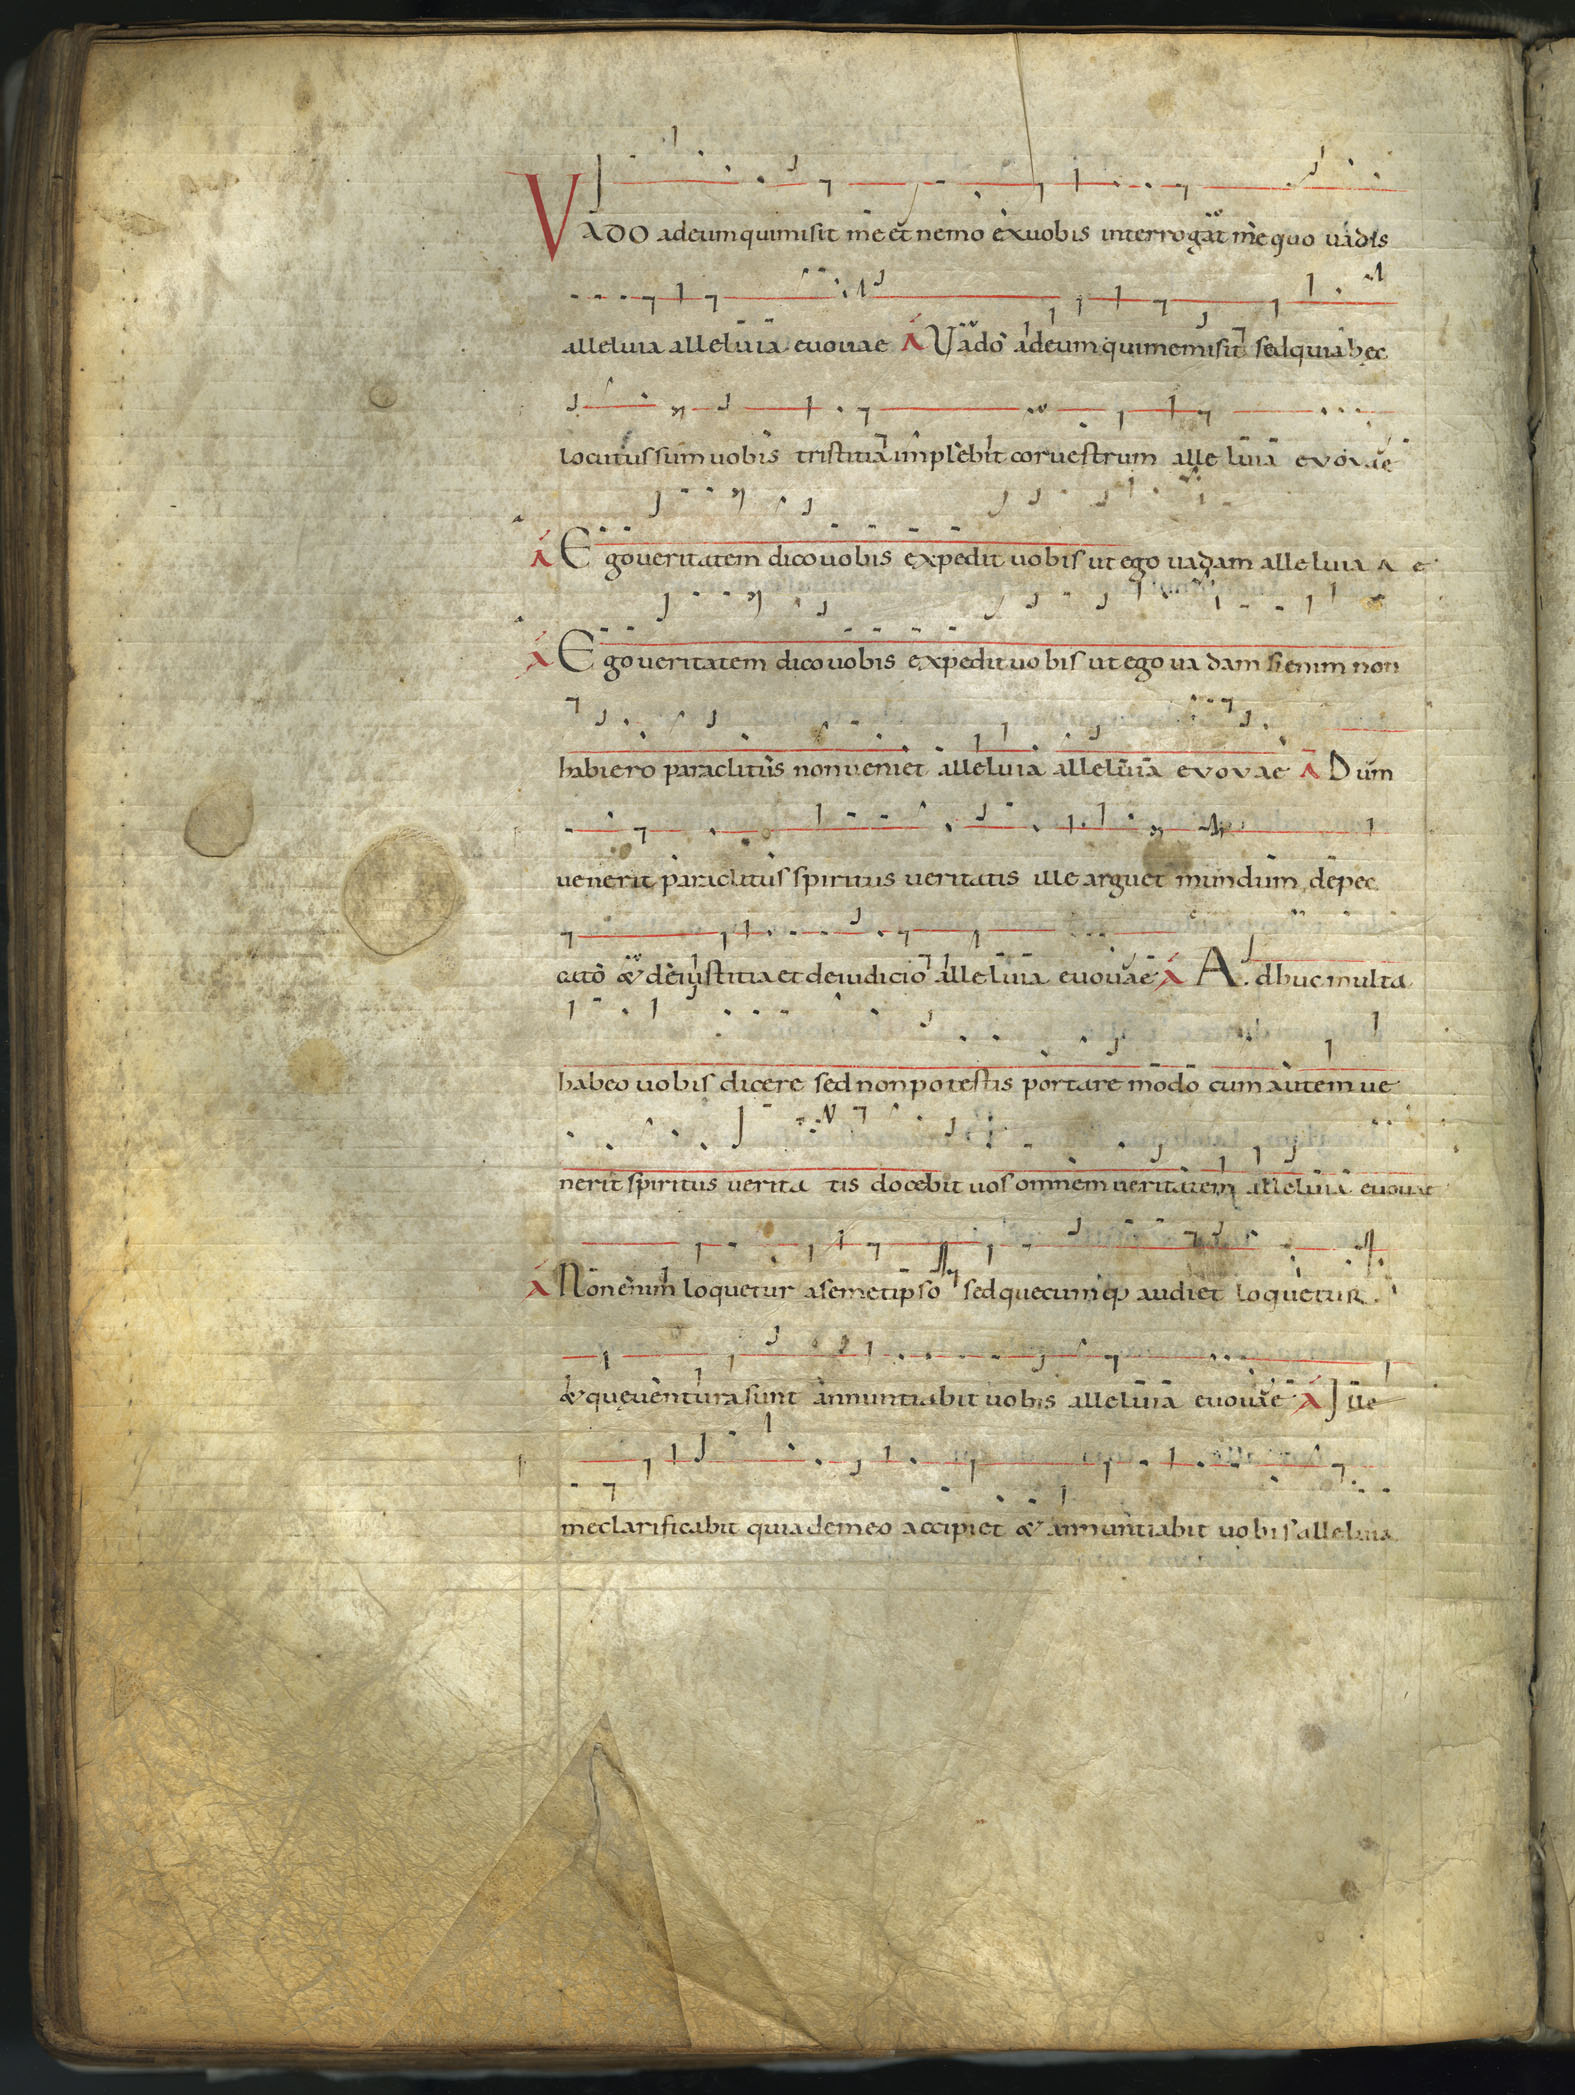 VADO adeum quimisit me et nemo exuobis interrogat me quo uadis
alleluia alleluia euouae A Uado adeum quimemisit sed quia hęc
locutus sum uobis tristitia impleb&it cor uestrum alleluia evovae
A Ego ueritatem dico uobis expedit uobis ut ego uadam alleluia a e
A Ego ueritatem dico uobis expedit uobis ut ego uadam si enim non
habiero paraclitus non ueniet alleluia alleluia evovae A Dum
uenerit paraclitus spiritus ueritatis ille arguet mundum depec
cato & deiustitia et deiudicio alleluia euouae A Adhuc multa
habeo uobis dicere sed non potestis portare modo cum autem ue
nerit spiritus ueritatis docebit uos omnem ueritatem alleluia euouae
A Non enim loquetur asemetipso sed quecumq; audiet loquetur.
& quę uentura sunt annuntiabit uobis alleluia euouae A Ille
me clarificabit quia demeo accipiet & annuntiabit uobis alleluia